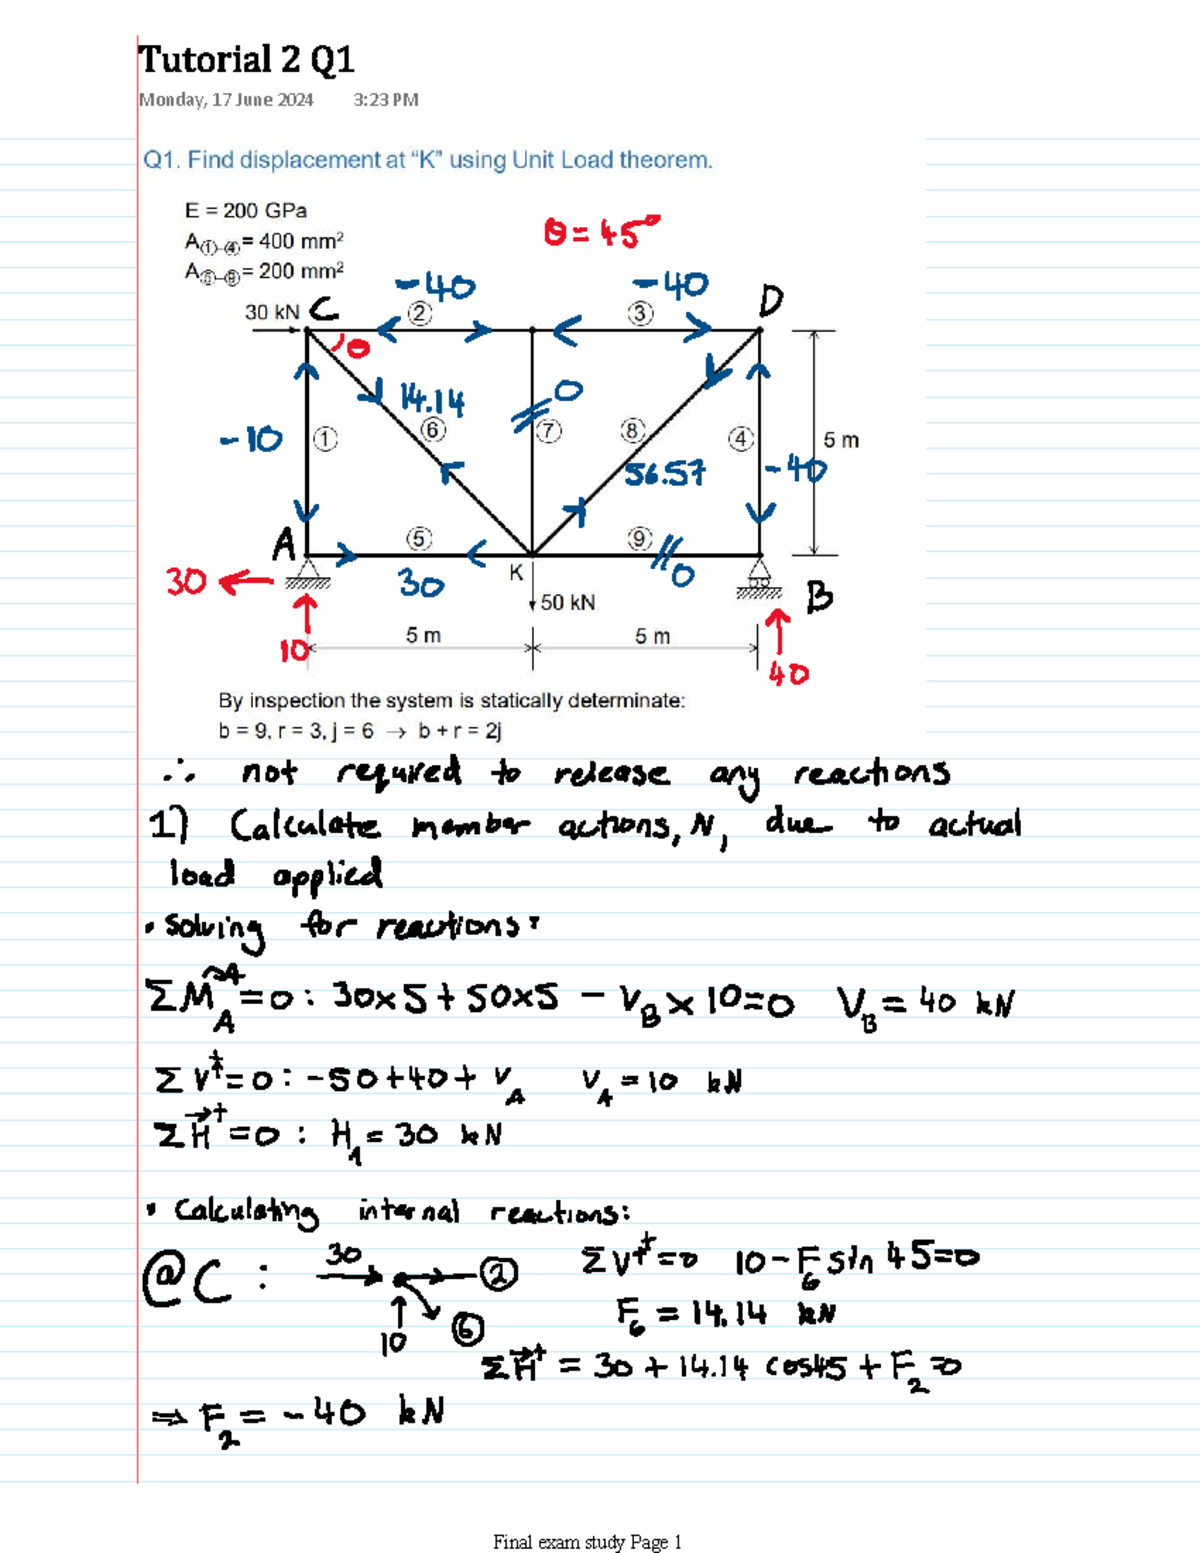 Tutorial 2 Q1
Monday, 17 June 2024 3:23 PM
Q1. Find displacement at "K" using Unit Load theorem.
E = 200 GPa
A①–④ = 400 mm²
A⑤–⑨ = 200 mm²
θ = 45°
-40 -40
30 kN C ② ③ D
θ
14.14 0
-10 ① ⑥ ⑦ ⑧ ④ 5 m
56.57 -40
A ⑤ ⑨
30 30 K 0 B
50 kN
10 5 m 5 m 40
By inspection the system is statically determinate:
b = 9, r = 3, j = 6 → b + r = 2j
∴ not required to release any reactions
1) Calculate member actions, N, due to actual
load applied
• Solving for reactions:
ΣM_A = 0 : 30×5 + 50×5 - V_B × 10 = 0 V_B = 40 kN
ΣV↑+ = 0 : -50 + 40 + V_A V_A = 10 kN
ΣH→+ = 0 : H_A = 30 kN
• Calculating internal reactions:
@C : 30 ② ΣV↑+ = 0 10 - F_6 sin 45 = 0
10 ⑥ F_6 = 14.14 kN
ΣH→+ = 30 + 14.14 cos45 + F_2 = 0
⇒ F_2 = -40 kN
Final exam study Page 1